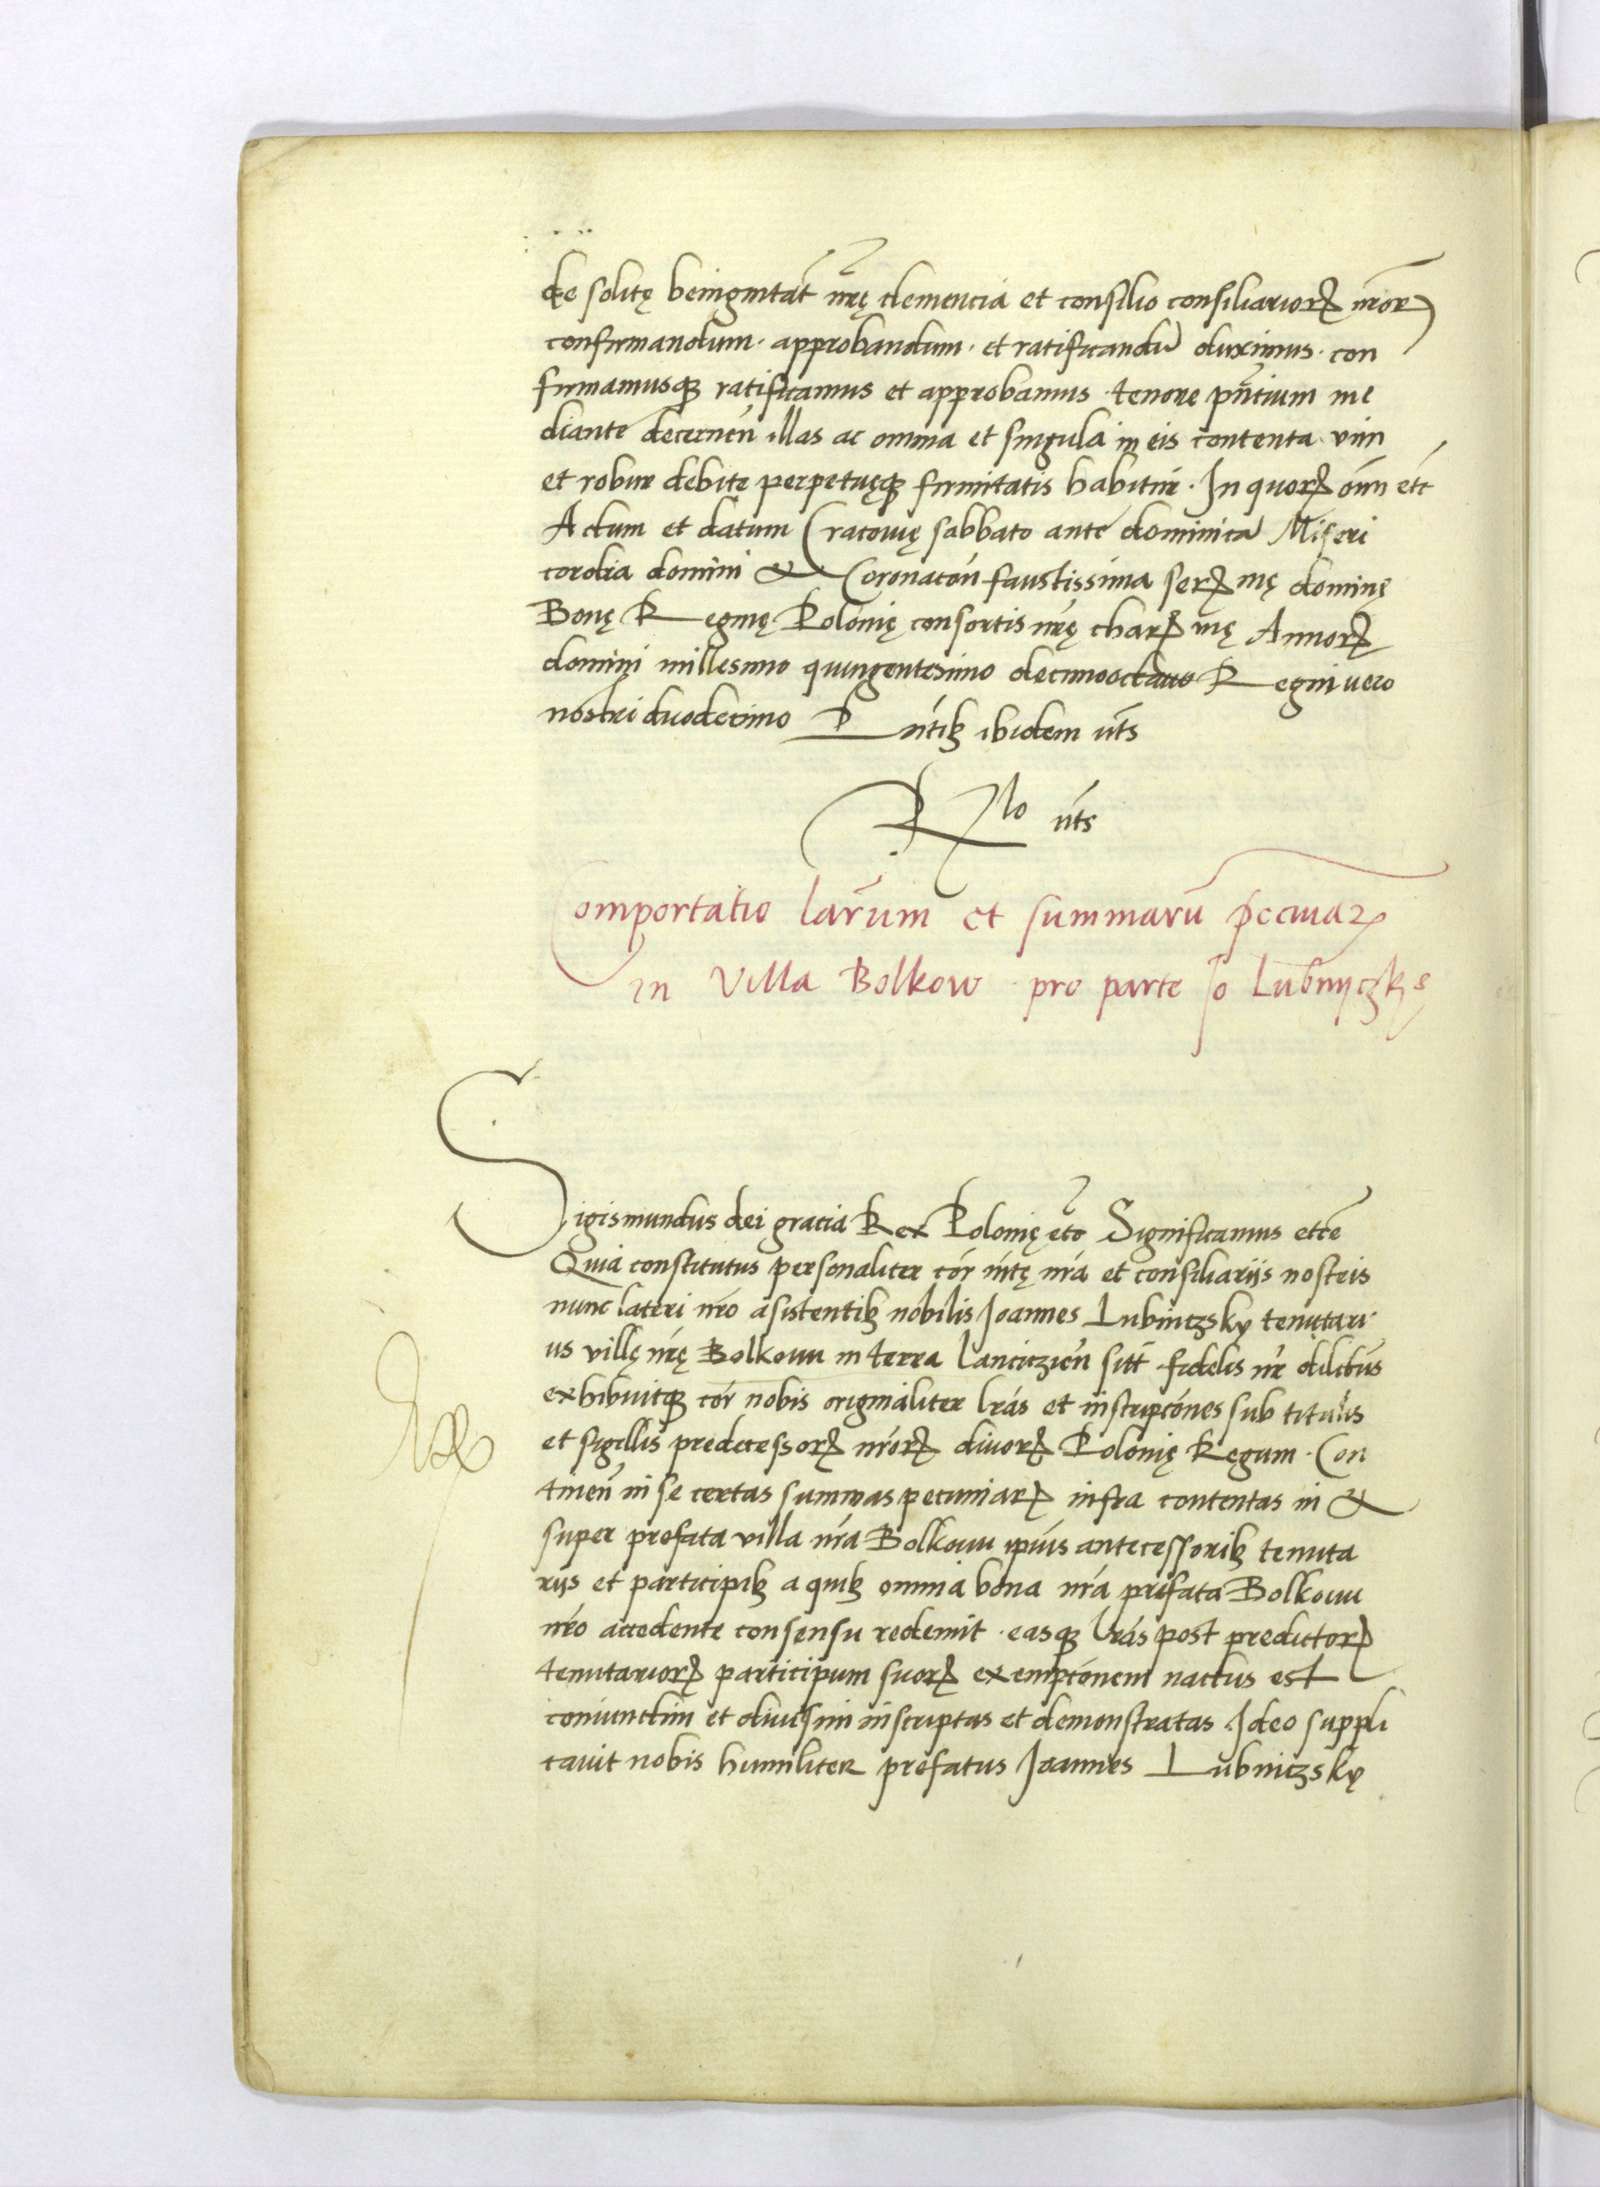 de solitę benignitat̄ nr̄ę clemencia et consilio consiliarioꝝ nr̄oꝝ
confirmandum · approbandum · et ratificandū duximus · con
firmamusqꝫ ratificamus et approbamus · tenore pn̄tium me
diante decernen̄ illas ac omnia et singula in eis contenta vim
et robur debitę perpetuęqꝫ firmitatis habitur̄ · In quoꝝ om̄n etc̄
Actum et datum Cracovię sabbato ante dominicā Miseri
cordia domini & Coronacōn faustissima serꝫ mę dominę
Bonę Reginę Polonię consortis nr̄ę charꝫ mę Annoꝝ
domini millesimo quingentesimo decimooctauo Regni vero
nostri duodecimo Pn̄tibꝫ ibidem ut̄s
R̄lo ut̄s
Comportatio lar̄um et summarū pecuniaꝝ
in Villa Bolkow · pro parte Jo Lubnyczky
Sigismundus dei gracia Rex Polonię etc̄ Significamus etc̄
Quia constitutus personaliter cor̄ mt̄ę nr̄a et consiliarijs nostris
nunc lateri nr̄o asistentibꝫ nobilis Joannes Lubniczsky tenutari
us villę nr̄ę Bolkouu in terra Lanciczien̄ sitt̄ · fidelis nr̄ dilc̄tus
exhibuitqꝫ cor̄ nobis originaliter lr̄as et inscripcōnes sub titulis
et sigillis predecessoꝝ nr̄oꝝ diuoꝝ Polonię Regum · Con
tinen̄ in se certas summas pecuniaꝝ infra contentas in &
super prefata villa nr̄a Bolkouu ip̄ius antecessoribꝫ tenuta
rijs et participibꝫ a quibꝫ omnia bona nr̄a prefata Bolkouu
nr̄o accedente consensu redemit · easqꝫ lr̄as post predictoꝝ
tenutarioꝝ participum suoꝝ exempcōnem nactus est
coniunctim et diuisim inscriptas et demonstratas · Ideo suppli
cauit nobis humiliter prefatus Joannes Lubniczsky